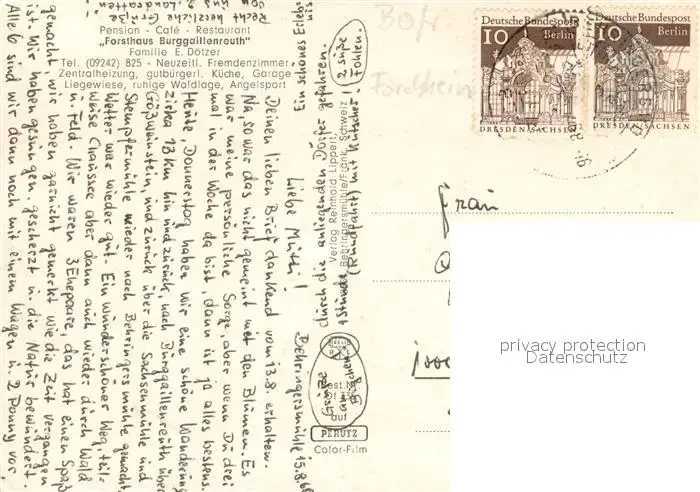 Liebe Mutti!
Behringersmühle 15.8.68
Deinen lieben Brief dankend vom 13.8. erhalten.
Na, so war das nicht gemeint mit den Blumen. Es
war meine persönliche Sorge, aber wenn Du drei
mal in der Woche da bist, dann ist ja alles bestens.
Heute, Donnerstag haben wir eine schöne Wanderung
circa 13 km hin und zurück, nach Burggaillenreuth über
Gößweinstein, und zurück über die Sachsenmühle und
Stempfermühle wieder nach Behringersmühle gemacht.
Wetter war wieder gut. Ein wunderschöner Weg, teil-
weise Chaussee aber dann auch wieder durch Wald
u. Feld. Wir waren 3 Ehepaare, das hat einen Spaß
gemacht, wir haben garnicht gemerkt wie die Zeit vergangen
ist. Wir haben gesungen, gescherzt u. die Natur bewundert.
Alle 6 sind wir dann noch mit einem Wagen u. 2 Ponny vor
1 Stunde durch die anliegenden Dörfer gefahren.
(Rundfahrt) mit Kutscher. (2 süße Fohlen.
Ein schönes Erlebnis
Recht herzliche Grüße
von
Pension - Café - Restaurant
„Forsthaus Burggaillenreuth"
Familie E. Dötzer
Tel. (09242) 825 · Neuzeitl. Fremdenzimmer
Zentralheizung, gutbürgerl. Küche, Garage
Liegewiese, ruhige Waldlage, Angelsport
Verlag Reinhold Lippert
Behringersmühle/Fränk. Schweiz
auf
PERUTZ
Color-Film
Forchheim
Deutsche Bundespost
10 Berlin
DRESDEN/SACHSEN
Deutsche Bundespost
10 Berlin
DRESDEN/SACHSEN
Frau
privacy protection
Datenschutz